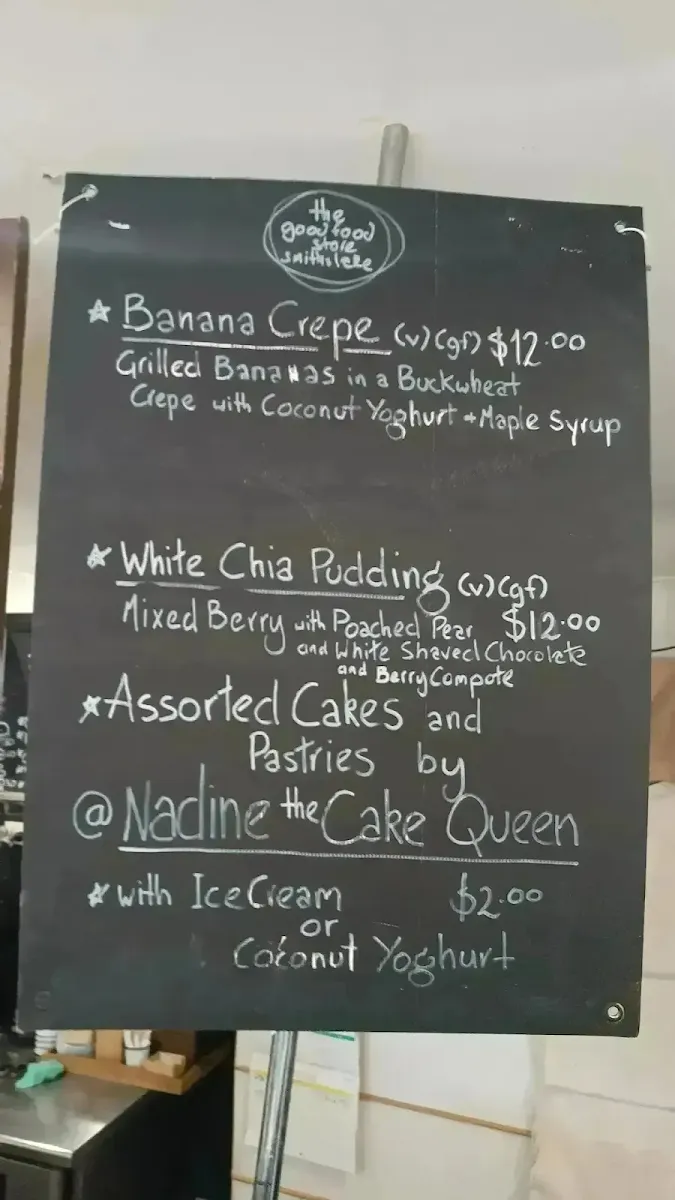 the
good food
store
smiths lake
* Banana Crepe (v) (gf) $12.00
Grilled Bananas in a Buckwheat
Crepe with Coconut Yoghurt + Maple Syrup
* White Chia Pudding (v) (gf)
Mixed Berry with Poached Pear $12.00
and White Shaved Chocolate
and Berry Compote
* Assorted Cakes and
Pastries by
@ Nadine the Cake Queen
* with Ice Cream $2.00
or
Coconut Yoghurt